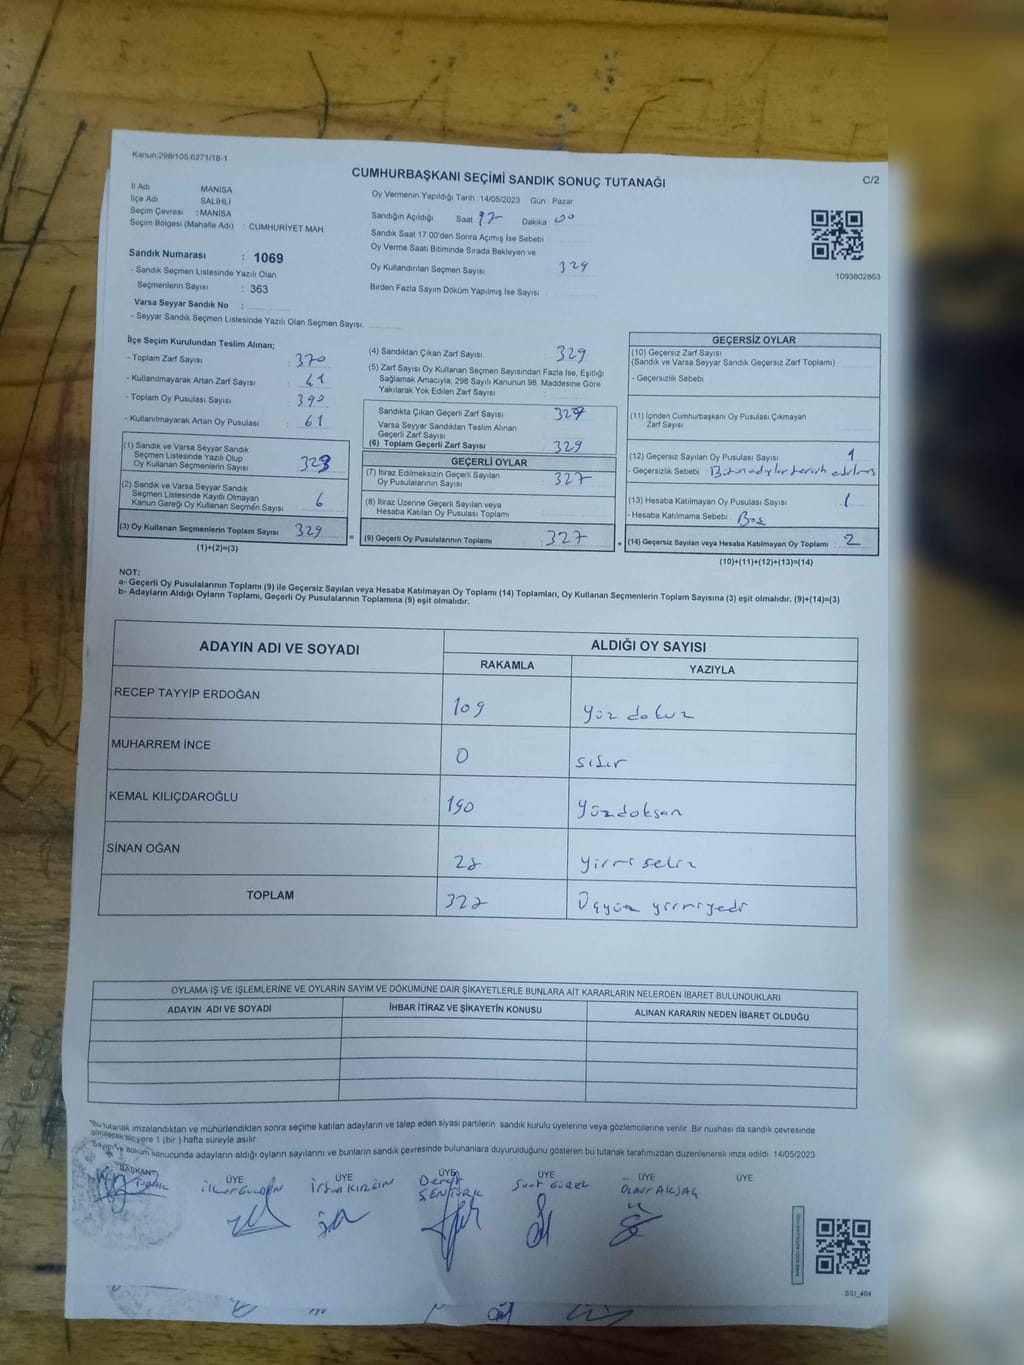 Kanun;298/105;6271/18-1
CUMHURBAŞKANI SEÇİMİ SANDIK SONUÇ TUTANAĞI
C/2
İl Adı MANİSA
İlçe Adı SALİHLİ
Seçim Çevresi : MANİSA
Seçim Bölgesi (Mahalle Adı) : CUMHURİYET MAH
Oy Vermenin Yapıldığı Tarih :14/05/2023 Gün Pazar
Sandığın Açıldığı Saat Dakika
Sandık Saat 17:00'den Sonra Açımış İse Sebebi
Oy Verme Saati Bitiminde Sırada Bekleyen ve
Oy Kullandırılan Seçmen Sayısı 329
Birden Fazla Sayım Döküm Yapılmış İse Sayısı :
1093802863
Sandık Numarası : 1069
- Sandık Seçmen Listesinde Yazılı Olan
Seçmenlerin Sayısı : 363
Varsa Seyyar Sandık No :
- Seyyar Sandık Seçmen Listesinde Yazılı Olan Seçmen Sayısı:
İlçe Seçim Kurulundan Teslim Alınan;
- Toplam Zarf Sayısı : 370
- Kullanılmayarak Artan Zarf Sayısı : 41
- Toplam Oy Pusulası Sayısı : 390
- Kullanılmayarak Artan Oy Pusulası : 61
(1) Sandık ve Varsa Seyyar Sandık
Seçmen Listesinde Yazılı Olup
Oy Kullanan Seçmenlerin Sayısı : 323
(2) Sandık ve Varsa Seyyar Sandık
Seçmen Listesinde Kayıtlı Olmayan
Kanun Gereği Oy Kullanan Seçmen Sayısı : 6
(3) Oy Kullanan Seçmenlerin Toplam Sayısı 329
(1)+(2)=(3)
=
(4) Sandıktan Çıkan Zarf Sayısı : 329
(5) Zarf Sayısı Oy Kullanan Seçmen Sayısından Fazla İse, Eşitliği
Sağlamak Amacıyla, 298 Sayılı Kanunun 98. Maddesine Göre
Yakılarak Yok Edilen Zarf Sayısı
Sandıkta Çıkan Geçerli Zarf Sayısı : 329
Varsa Seyyar Sandıktan Teslim Alınan
Geçerli Zarf Sayısı
(6) Toplam Geçerli Zarf Sayısı : 329
GEÇERLİ OYLAR
(7) İtiraz Edilmeksizin Geçerli Sayılan
Oy Pusulalarının Sayısı : 327
(8) İtiraz Üzerine Geçerli Sayılan veya
Hesaba Katılan Oy Pusulası Toplamı
(9) Geçerli Oy Pusulalarının Toplamı : 327
+
GEÇERSİZ OYLAR
(10) Geçersiz Zarf Sayısı
(Sandık ve Varsa Seyyar Sandık Geçersiz Zarf Toplamı)
- Geçersizlik Sebebi
(11) İçinden Cumhurbaşkanı Oy Pusulası Çıkmayan
Zarf Sayısı
(12) Geçersiz Sayılan Oy Pusulası Sayısı : 1
- Geçersizlik Sebebi : Bütün adaylar tercih edilmiş
(13) Hesaba Katılmayan Oy Pusulası Sayısı : 1
- Hesaba Katılmama Sebebi : Boş
(14) Geçersiz Sayılan veya Hesaba Katılmayan Oy Toplamı : 2
(10)+(11)+(12)+(13)=(14)
NOT:
a- Geçerli Oy Pusulalarının Toplamı (9) ile Geçersiz Sayılan veya Hesaba Katılmayan Oy Toplamı (14) Toplamları, Oy Kullanan Seçmenlerin Toplam Sayısına (3) eşit olmalıdır. (9)+(14)=(3)
b- Adayların Aldığı Oyların Toplamı, Geçerli Oy Pusulalarının Toplamına (9) eşit olmalıdır.
ADAYIN ADI VE SOYADI ALDIĞI OY SAYISI
RAKAMLA YAZIYLA
RECEP TAYYİP ERDOĞAN 109 Yüz dokuz
MUHARREM İNCE 0 sıfır
KEMAL KILIÇDAROĞLU 190 Yüzdoksan
SİNAN OĞAN 28 yirmi sekiz
TOPLAM 327 Üçyüz yirmiyedi
OYLAMA İŞ VE İŞLEMLERİNE VE OYLARIN SAYIM VE DÖKÜMÜNE DAİR ŞİKAYETLERLE BUNLARA AİT KARARLARIN NELERDEN İBARET BULUNDUKLARI
ADAYIN ADI VE SOYADI İHBAR İTİRAZ VE ŞİKAYETİN KONUSU ALINAN KARARIN NEDEN İBARET OLDUĞU
*Bu tutanak imzalandıktan ve mühürlendikten sonra seçime katılan adayların ve talep eden siyasi partilerin sandık kurulu üyelerine veya gözlemcilerine verilir. Bir nüshası da sandık çevresinde
görülecek bir yere 1 (bir) hafta süreyle asılır
Sayım ve döküm sonucunda adayların aldığı oyların sayılarını ve bunların sandık çevresinde bulunanlara duyurulduğunu gösteren bu tutanak tarafımızdan düzenlenerek imza edildi. 14/05/2023
BAŞKAN ÜYE ÜYE ÜYE ÜYE ÜYE ÜYE
İrfan KIRGIN
ŞENTÜRK
Suat GÜREL
AKSAÇ
SSİ_404